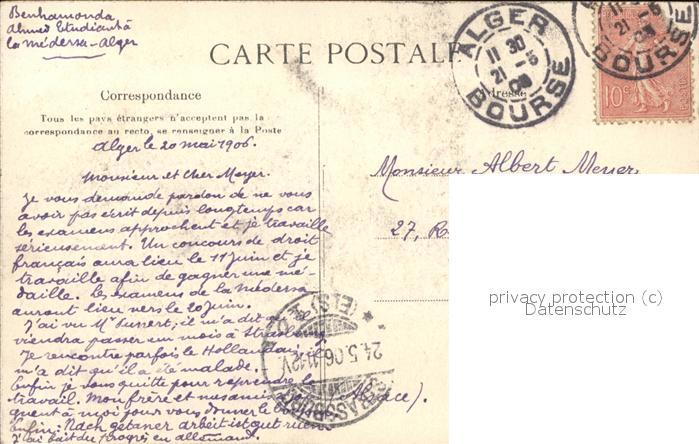 Benhamouda
Ahmed Etudiant à
la médersa - Alger
CARTE POSTALE
ALGER
11 30
21 -5
06
BOURSE
21 -5
BOURSE
10c
Adresse
Correspondance
Tous les pays étrangers n'acceptent pas la
correspondance au recto, se renseigner à la Poste
Alger le 20 mai 1906.
Monsieur et Cher Meyer.
Je vous demande pardon de ne vous
avoir pas écrit depuis longtemps car
les examens approchent et je travaille
sérieusement. Un concours de droit
français aura lieu le 11 Juin et je
travaille afin de gagner une mé-
daille. Les examens de la médersa
auront lieu vers le 20 Juin.
J'ai vu Mr ; il m'a dit qu'
viendra passer un mois à Strasbourg
Je rencontre parfois le Hollandais
m'a dit qu'il a été malade.
Enfin je vous quitte pour reprendre le
travail. Mon frère et mes amis
à moi pour vous donner le
Enfin: Nach getaner arbeit ist gut
J'ai fait du progrès en allemand.
Monsieur Albert Meyer
27, R
Alsace).
STRASSBURG
(ELS)
24.5.06.11-12V.
privacy protection (c)
Datenschutz